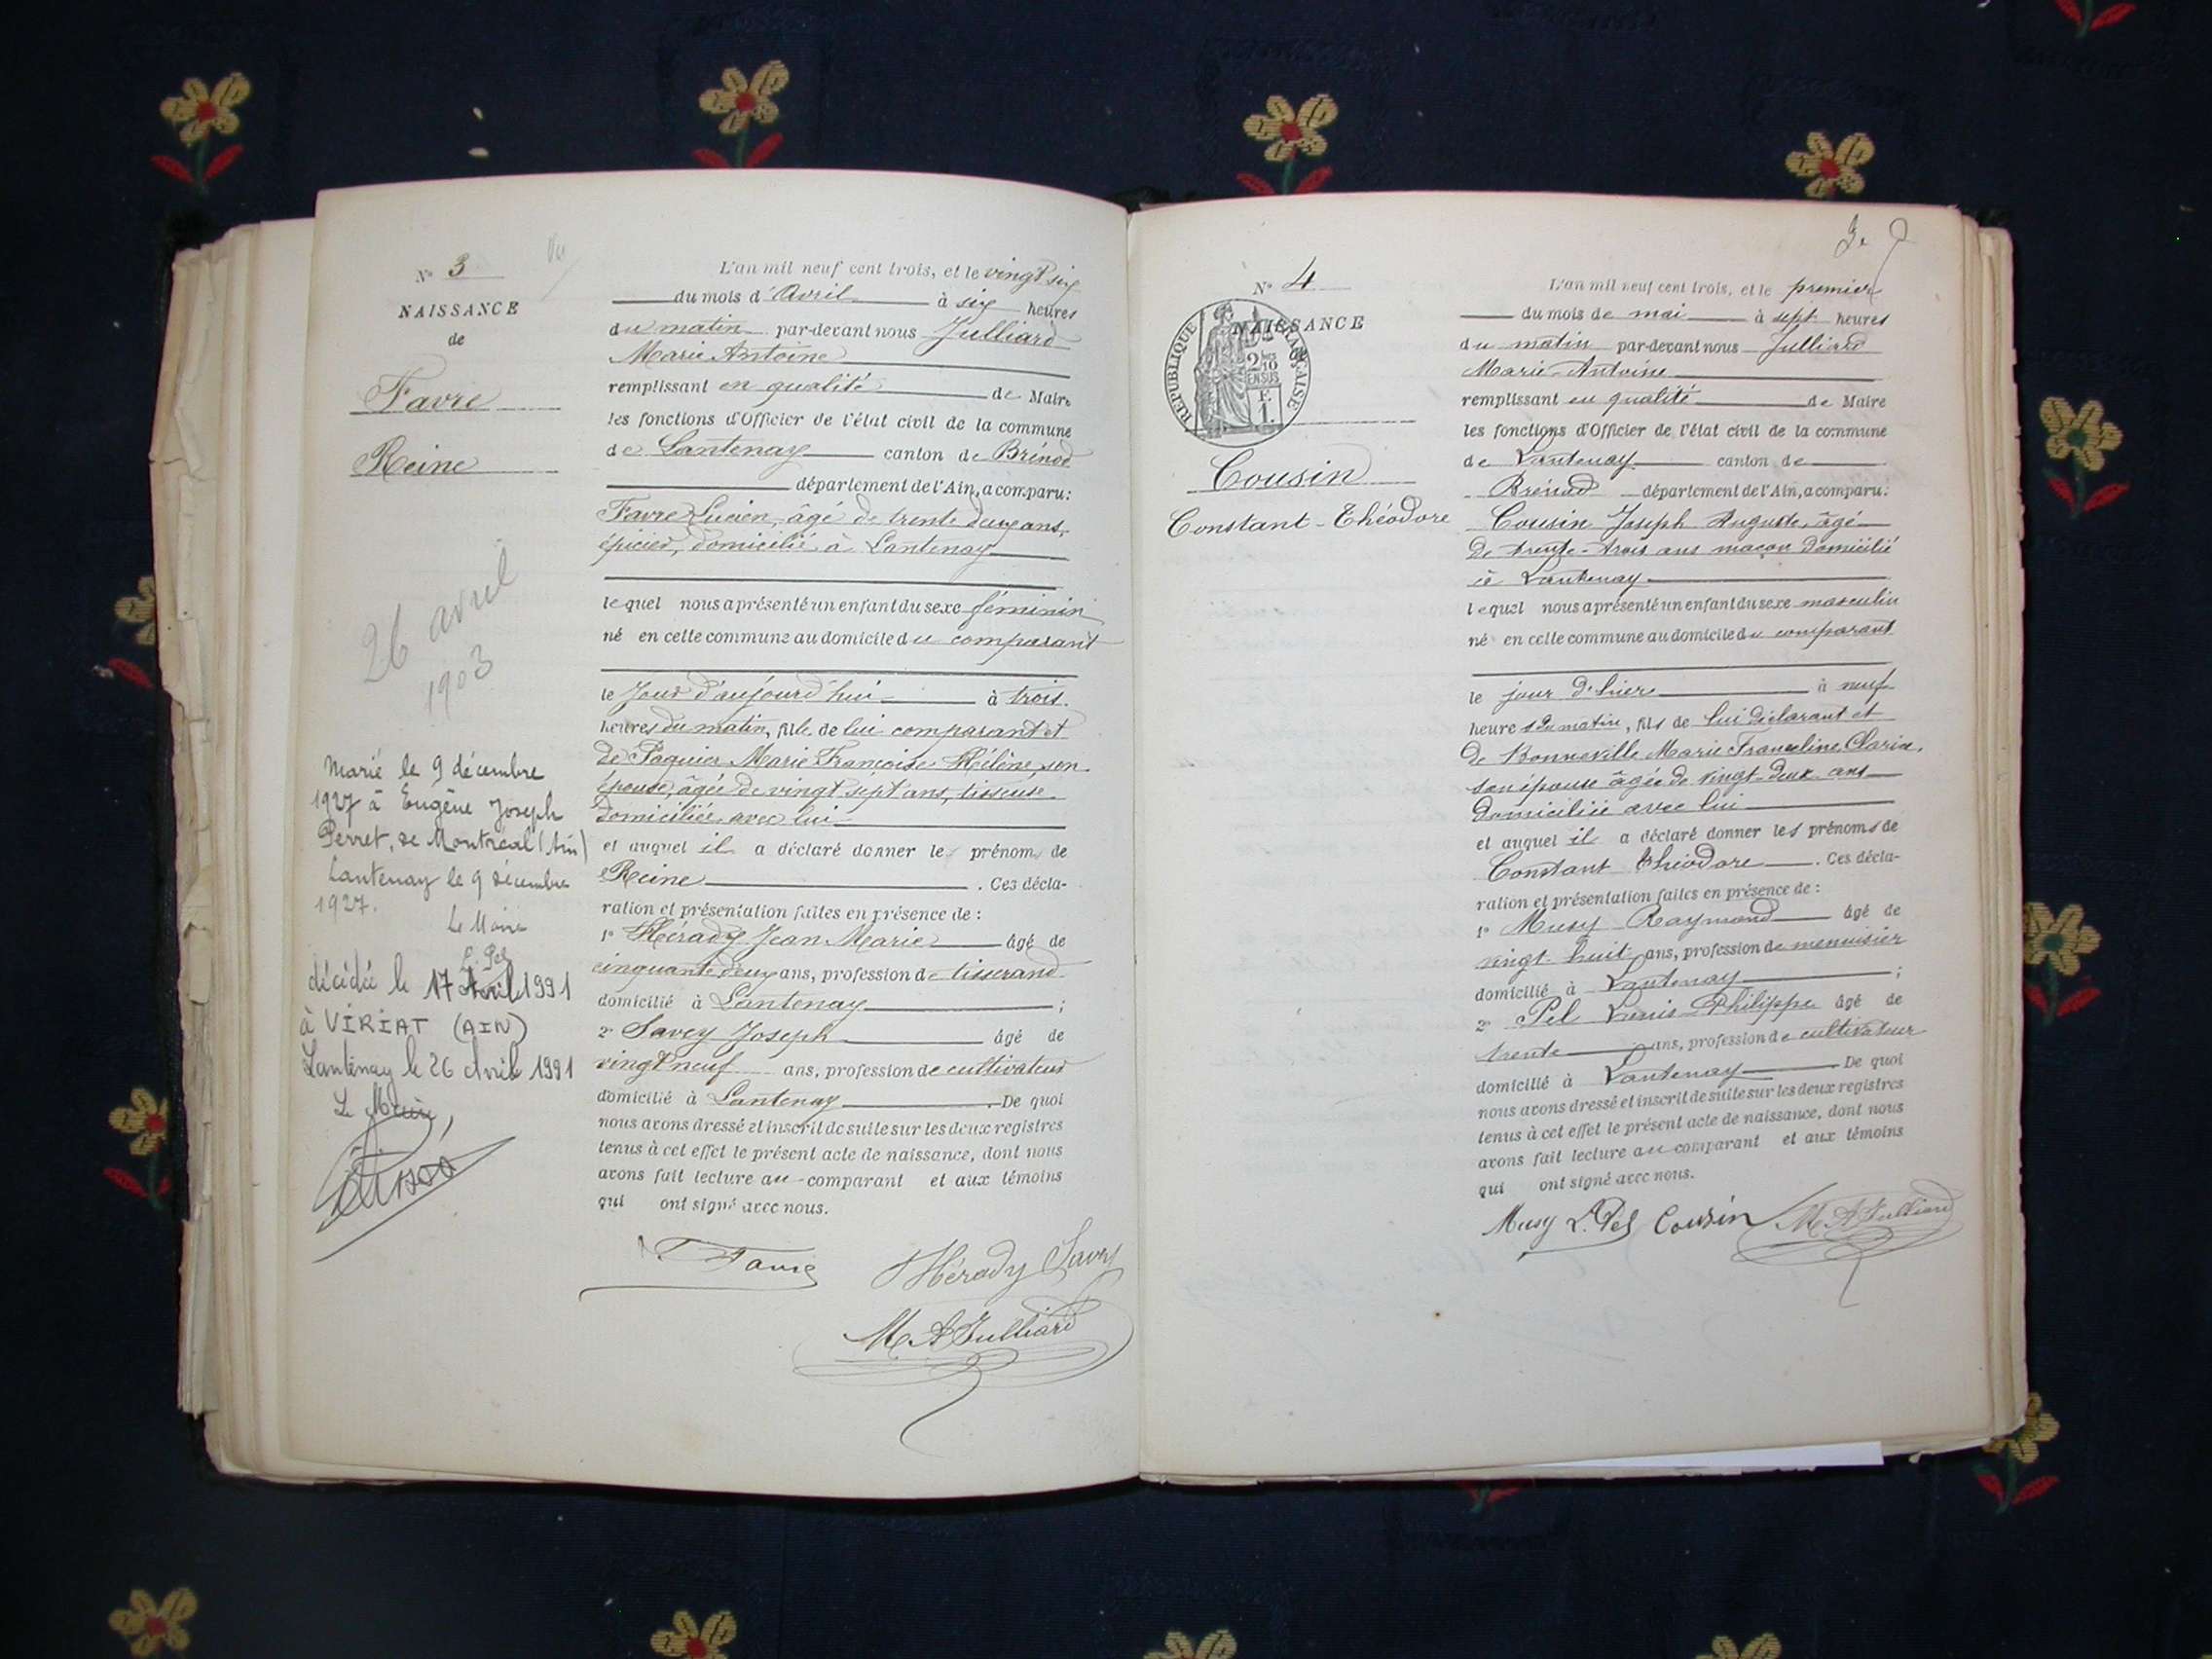 N° 3
NAISSANCE
de
Favre
Reine
26 avril
1903
Marié le 9 décembre
1927 à Eugène Joseph
Perret, de Montréal (Ain)
Lantenay le 9 décembre
1927.
Le Maire
L. Pel
décédée le 17 Avril 1991
à VIRIAT (AIN)
Lantenay le 26 Avril 1991
Le Maire,
L'an mil neuf cent trois, et le vingt six
du mois d'Avril à six heures
du matin par-devant nous Julliard
Marie Antoine
remplissant en qualité de Maire
les fonctions d'Officier de l'état civil de la commune
de Lantenay canton de Brénod
département de l'Ain, a comparu:
Favre Lucien, âgé de trente deux ans,
épicier, domicilié à Lantenay
lequel nous a présenté un enfant du sexe féminin
né en cette commune au domicile du comparant
le jour d'aujourd'hui à trois
heures du matin, fille de lui comparant et
de Paquier Marie Françoise Hélène, son
épouse, âgée de vingt sept ans, tisseuse
domiciliée avec lui
et auquel il a déclaré donner le prénom de
Reine. Ces décla-
ration et présentation faites en présence de :
1° Hérady Jean Marie âgé de
cinquante deux ans, profession de tisserand
domicilié à Lantenay ;
2° Savey Joseph âgé de
vingt neuf ans, profession de cultivateur
domicilié à Lantenay. De quoi
nous avons dressé et inscrit de suite sur les deux registres
tenus à cet effet le présent acte de naissance, dont nous
avons fait lecture au comparant et aux témoins
qui ont signé avec nous.
Favre Hérady Savey
M A Julliard
N° 4
NAISSANCE
REPUBLIQUE FRANÇAISE
2/10
EN SUS
F.
1.
Cousin
Constant-Théodore
L'an mil neuf cent trois, et le premier
du mois de mai à sept heures
du matin par-devant nous Julliard
Marie-Antoine
remplissant en qualité de Maire
les fonctions d'Officier de l'état civil de la commune
de Lantenay canton de
Brénod département de l'Ain, a comparu:
Cousin Joseph Auguste, âgé
de trente-trois ans maçon domicilié
à Lantenay
lequel nous a présenté un enfant du sexe masculin
né en cette commune au domicile du comparant
le jour d'hier à neuf
heures du matin, fils de lui déclarant et
de Bonneville Marie Franceline Clarisse,
son épouse âgée de vingt-deux ans
domiciliée avec lui
et auquel il a déclaré donner les prénoms de
Constant Théodore. Ces décla-
ration et présentation faites en présence de :
1° Musy Raymond âgé de
vingt-huit ans, profession de menuisier
domicilié à Lantenay ;
2° Pel Louis-Philippe âgé de
trente ans, profession de cultivateur
domicilié à Lantenay. De quoi
nous avons dressé et inscrit de suite sur les deux registres
tenus à cet effet le présent acte de naissance, dont nous
avons fait lecture au comparant et aux témoins
qui ont signé avec nous.
Musy L. Pel Cousin M A Julliard